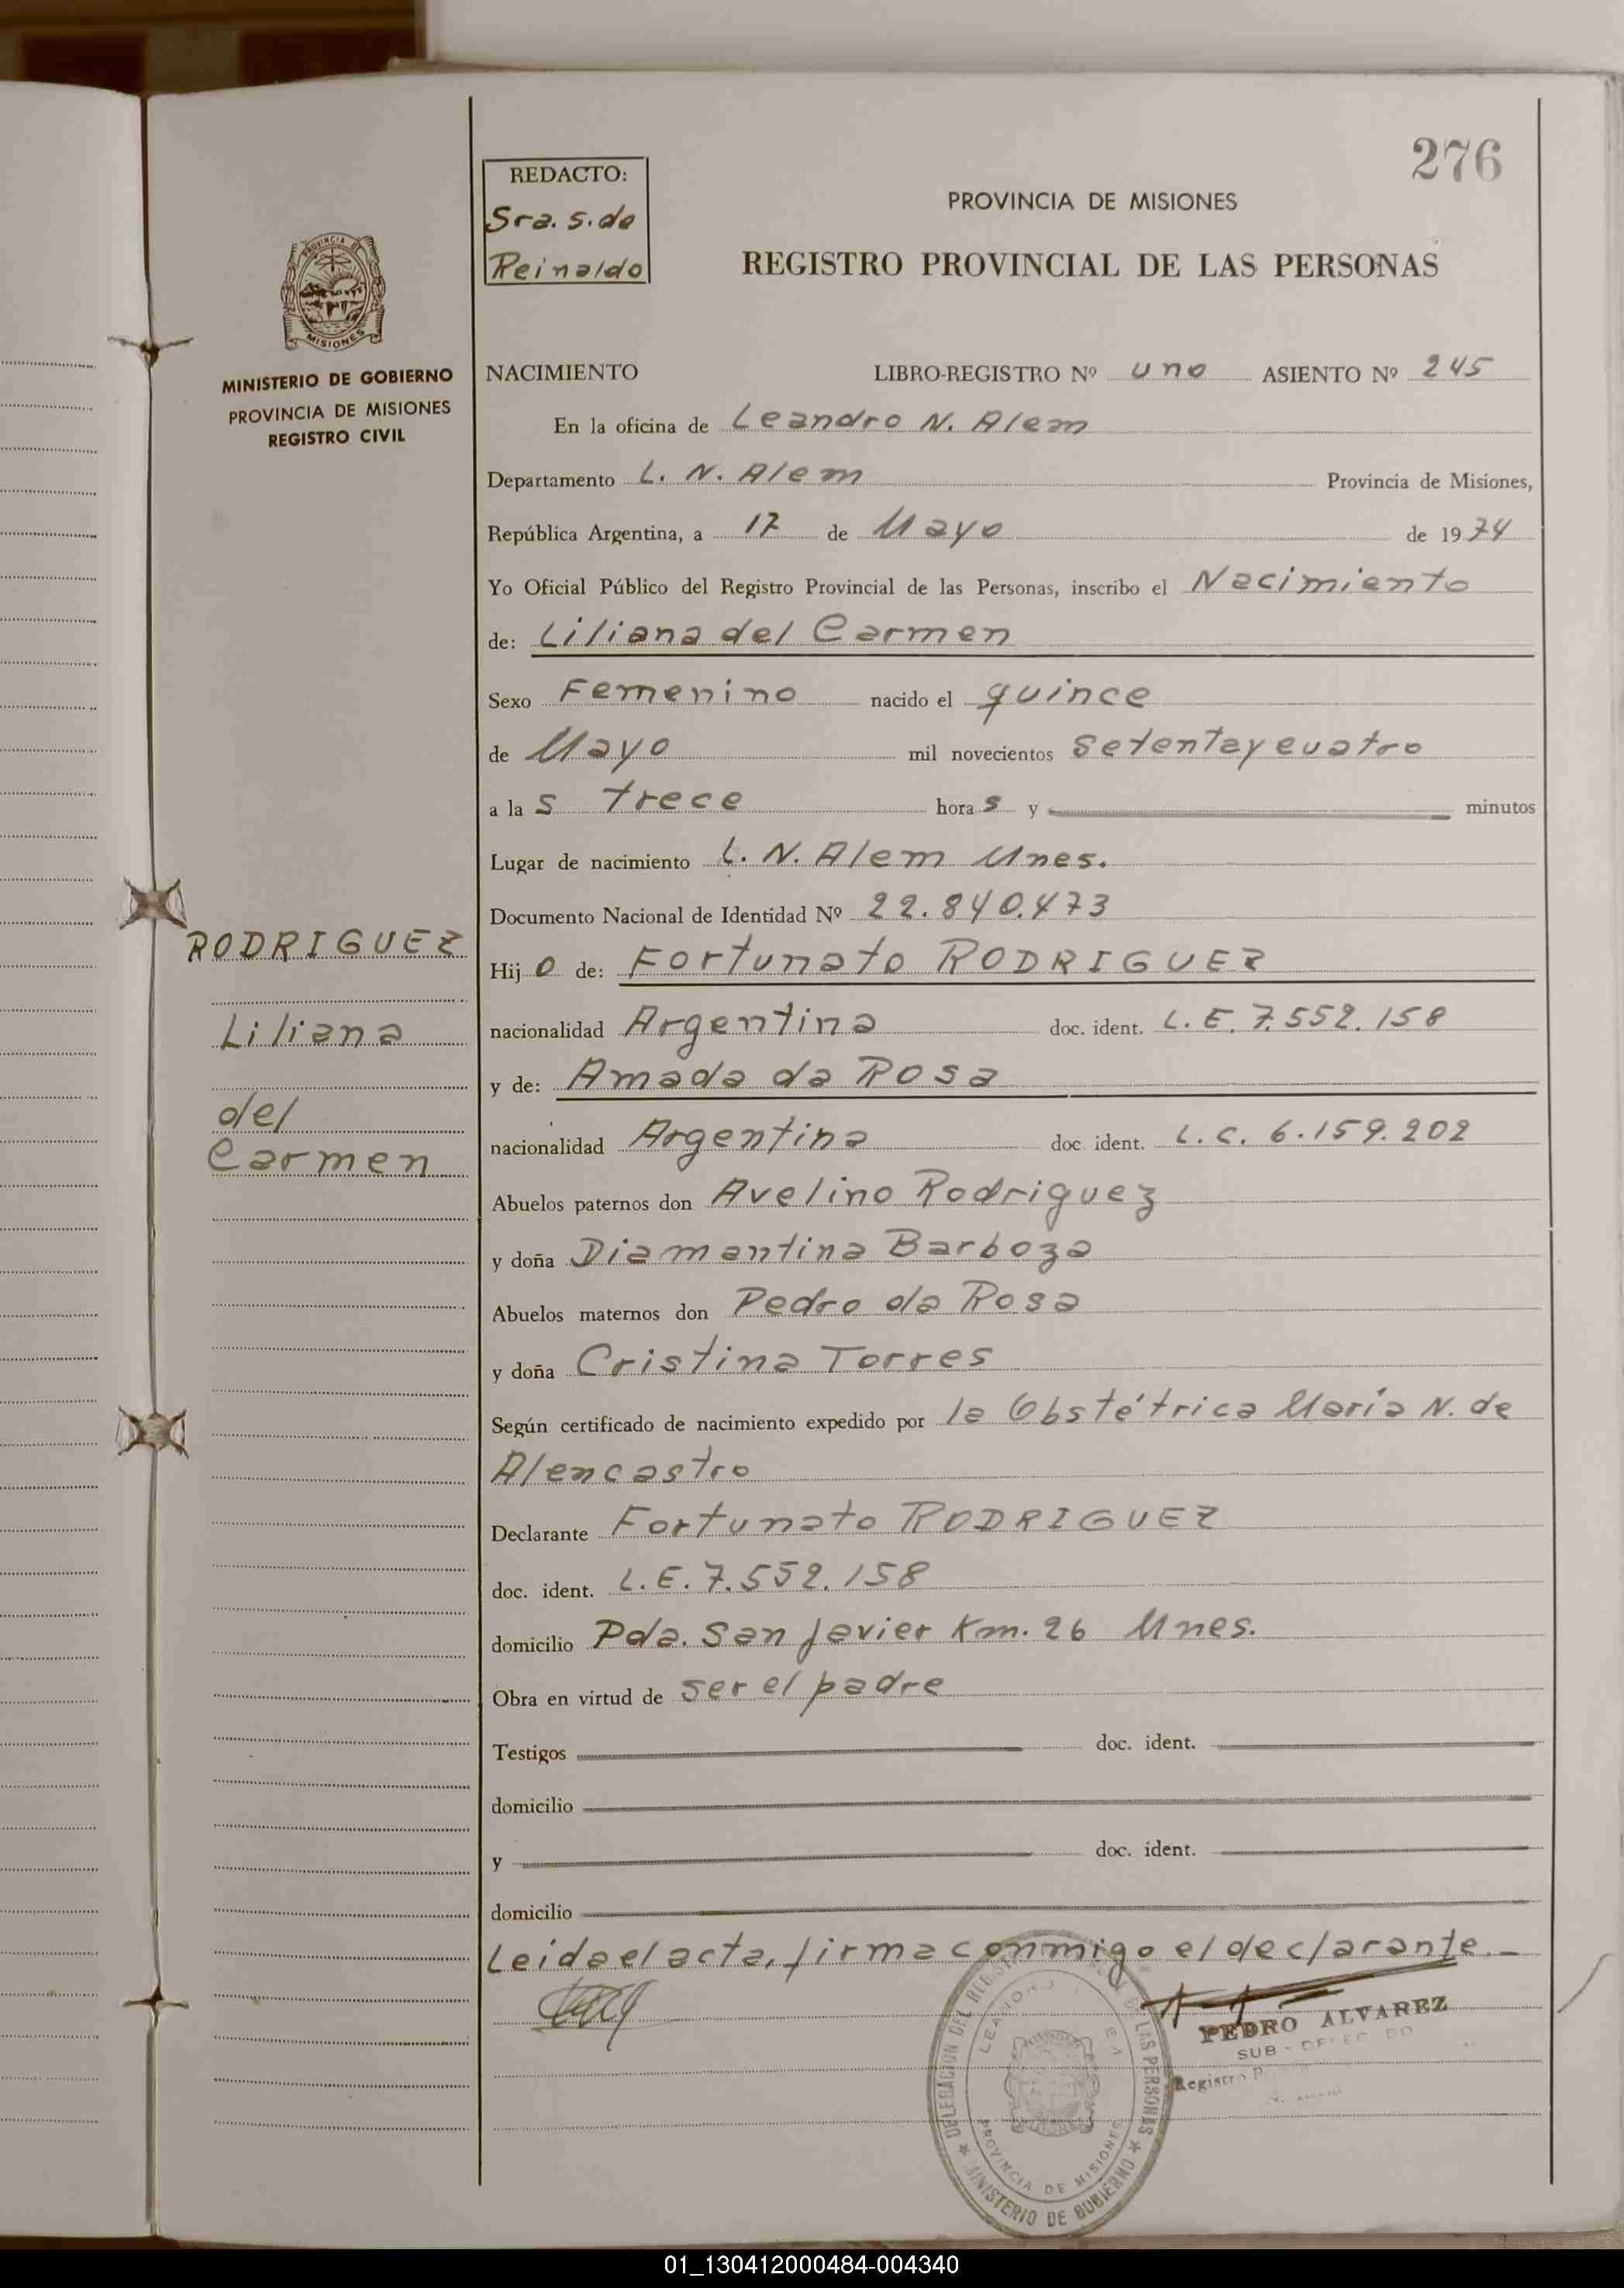 276
REDACTO:
Sra. S. de
Reinaldo
PROVINCIA DE MISIONES
REGISTRO PROVINCIAL DE LAS PERSONAS
PROVINCIA DE
MISIONES
MINISTERIO DE GOBIERNO
PROVINCIA DE MISIONES
REGISTRO CIVIL
NACIMIENTO LIBRO-REGISTRO Nº uno ASIENTO Nº 245
En la oficina de Leandro N. Alem
Departamento L. N. Alem Provincia de Misiones,
República Argentina, a 17 de Mayo de 1974
Yo Oficial Público del Registro Provincial de las Personas, inscribo el Nacimiento
de: Liliana del Carmen
Sexo Femenino nacido el quince
de Mayo mil novecientos setenta y cuatro
a las trece horas y minutos
Lugar de nacimiento L. N. Alem Mnes.
Documento Nacional de Identidad Nº 22.840.473
RODRIGUEZ
Liliana
del
Carmen
Hijo de: Fortunato RODRIGUEZ
nacionalidad Argentina doc. ident. L. E. 7.552.158
y de: Amada da Rosa
nacionalidad Argentina doc. ident. L. C. 6.159.202
Abuelos paternos don Avelino Rodriguez
y doña Diamantina Barboza
Abuelos maternos don Pedro da Rosa
y doña Cristina Torres
Según certificado de nacimiento expedido por la Obstétrica María N. de
Alencastro
Declarante Fortunato RODRIGUEZ
doc. ident. L. E. 7.552.158
domicilio Pda. San Javier Km. 26 Mnes.
Obra en virtud de ser el padre
Testigos doc. ident.
domicilio
y doc. ident.
domicilio
Leida el acta, firma conmigo el declarante.-
PEDRO ALVAREZ
SUB-
Registro
DELEGACION DEL DE LAS PERSONAS
PROVINCIA DE MISIONES
MINISTERIO DE GOBIERNO
01_130412000484-004340